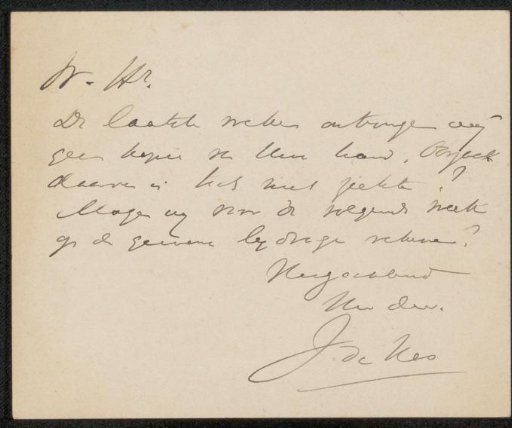 W. Hr.
De laatste weken ontvingen wij
geen kopie van Uwe hand. Oorzaak
daarvan is toch niet ziekte?
Mogen wij voor de volgende week
op de gewone bijdrage rekenen?
Hoogachtend
Uw dw.
J. de Koo